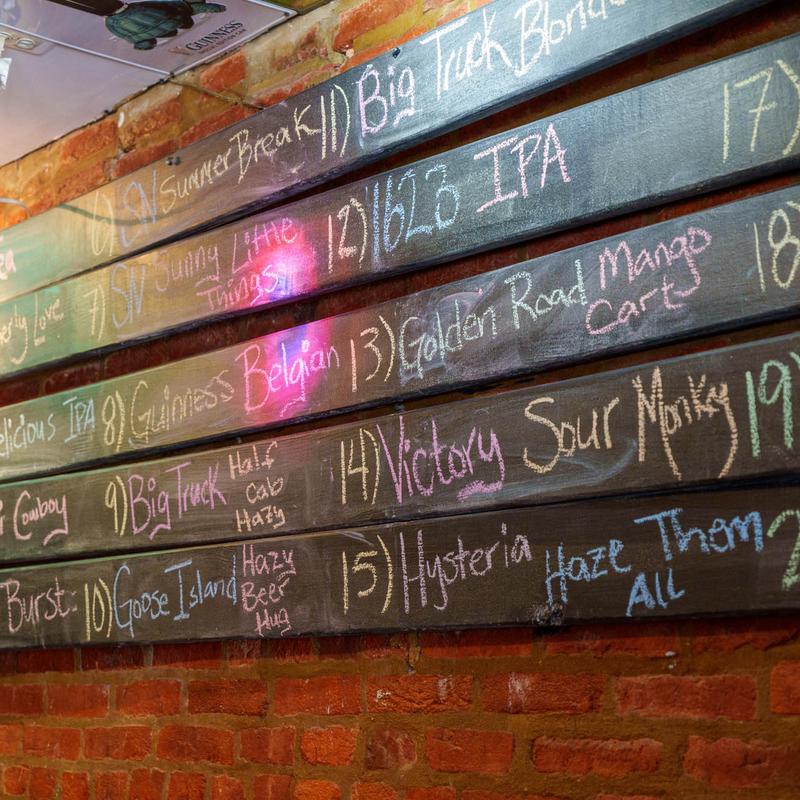 GUINNESS
6) SN Summer Break 11) Big Truck Blonde
7) SN Sunny Little Things 12) 1623 IPA 17)
8) Guinness Belgian 13) Golden Road Mango Cart 18)
elicious IPA 9) Big Truck Half Cab Hazy 14) Victory Sour Monkey 19)
r Cowboy 10) Goose Island Hazy Beer Hug 15) Hysteria Haze Them All 2
Burst